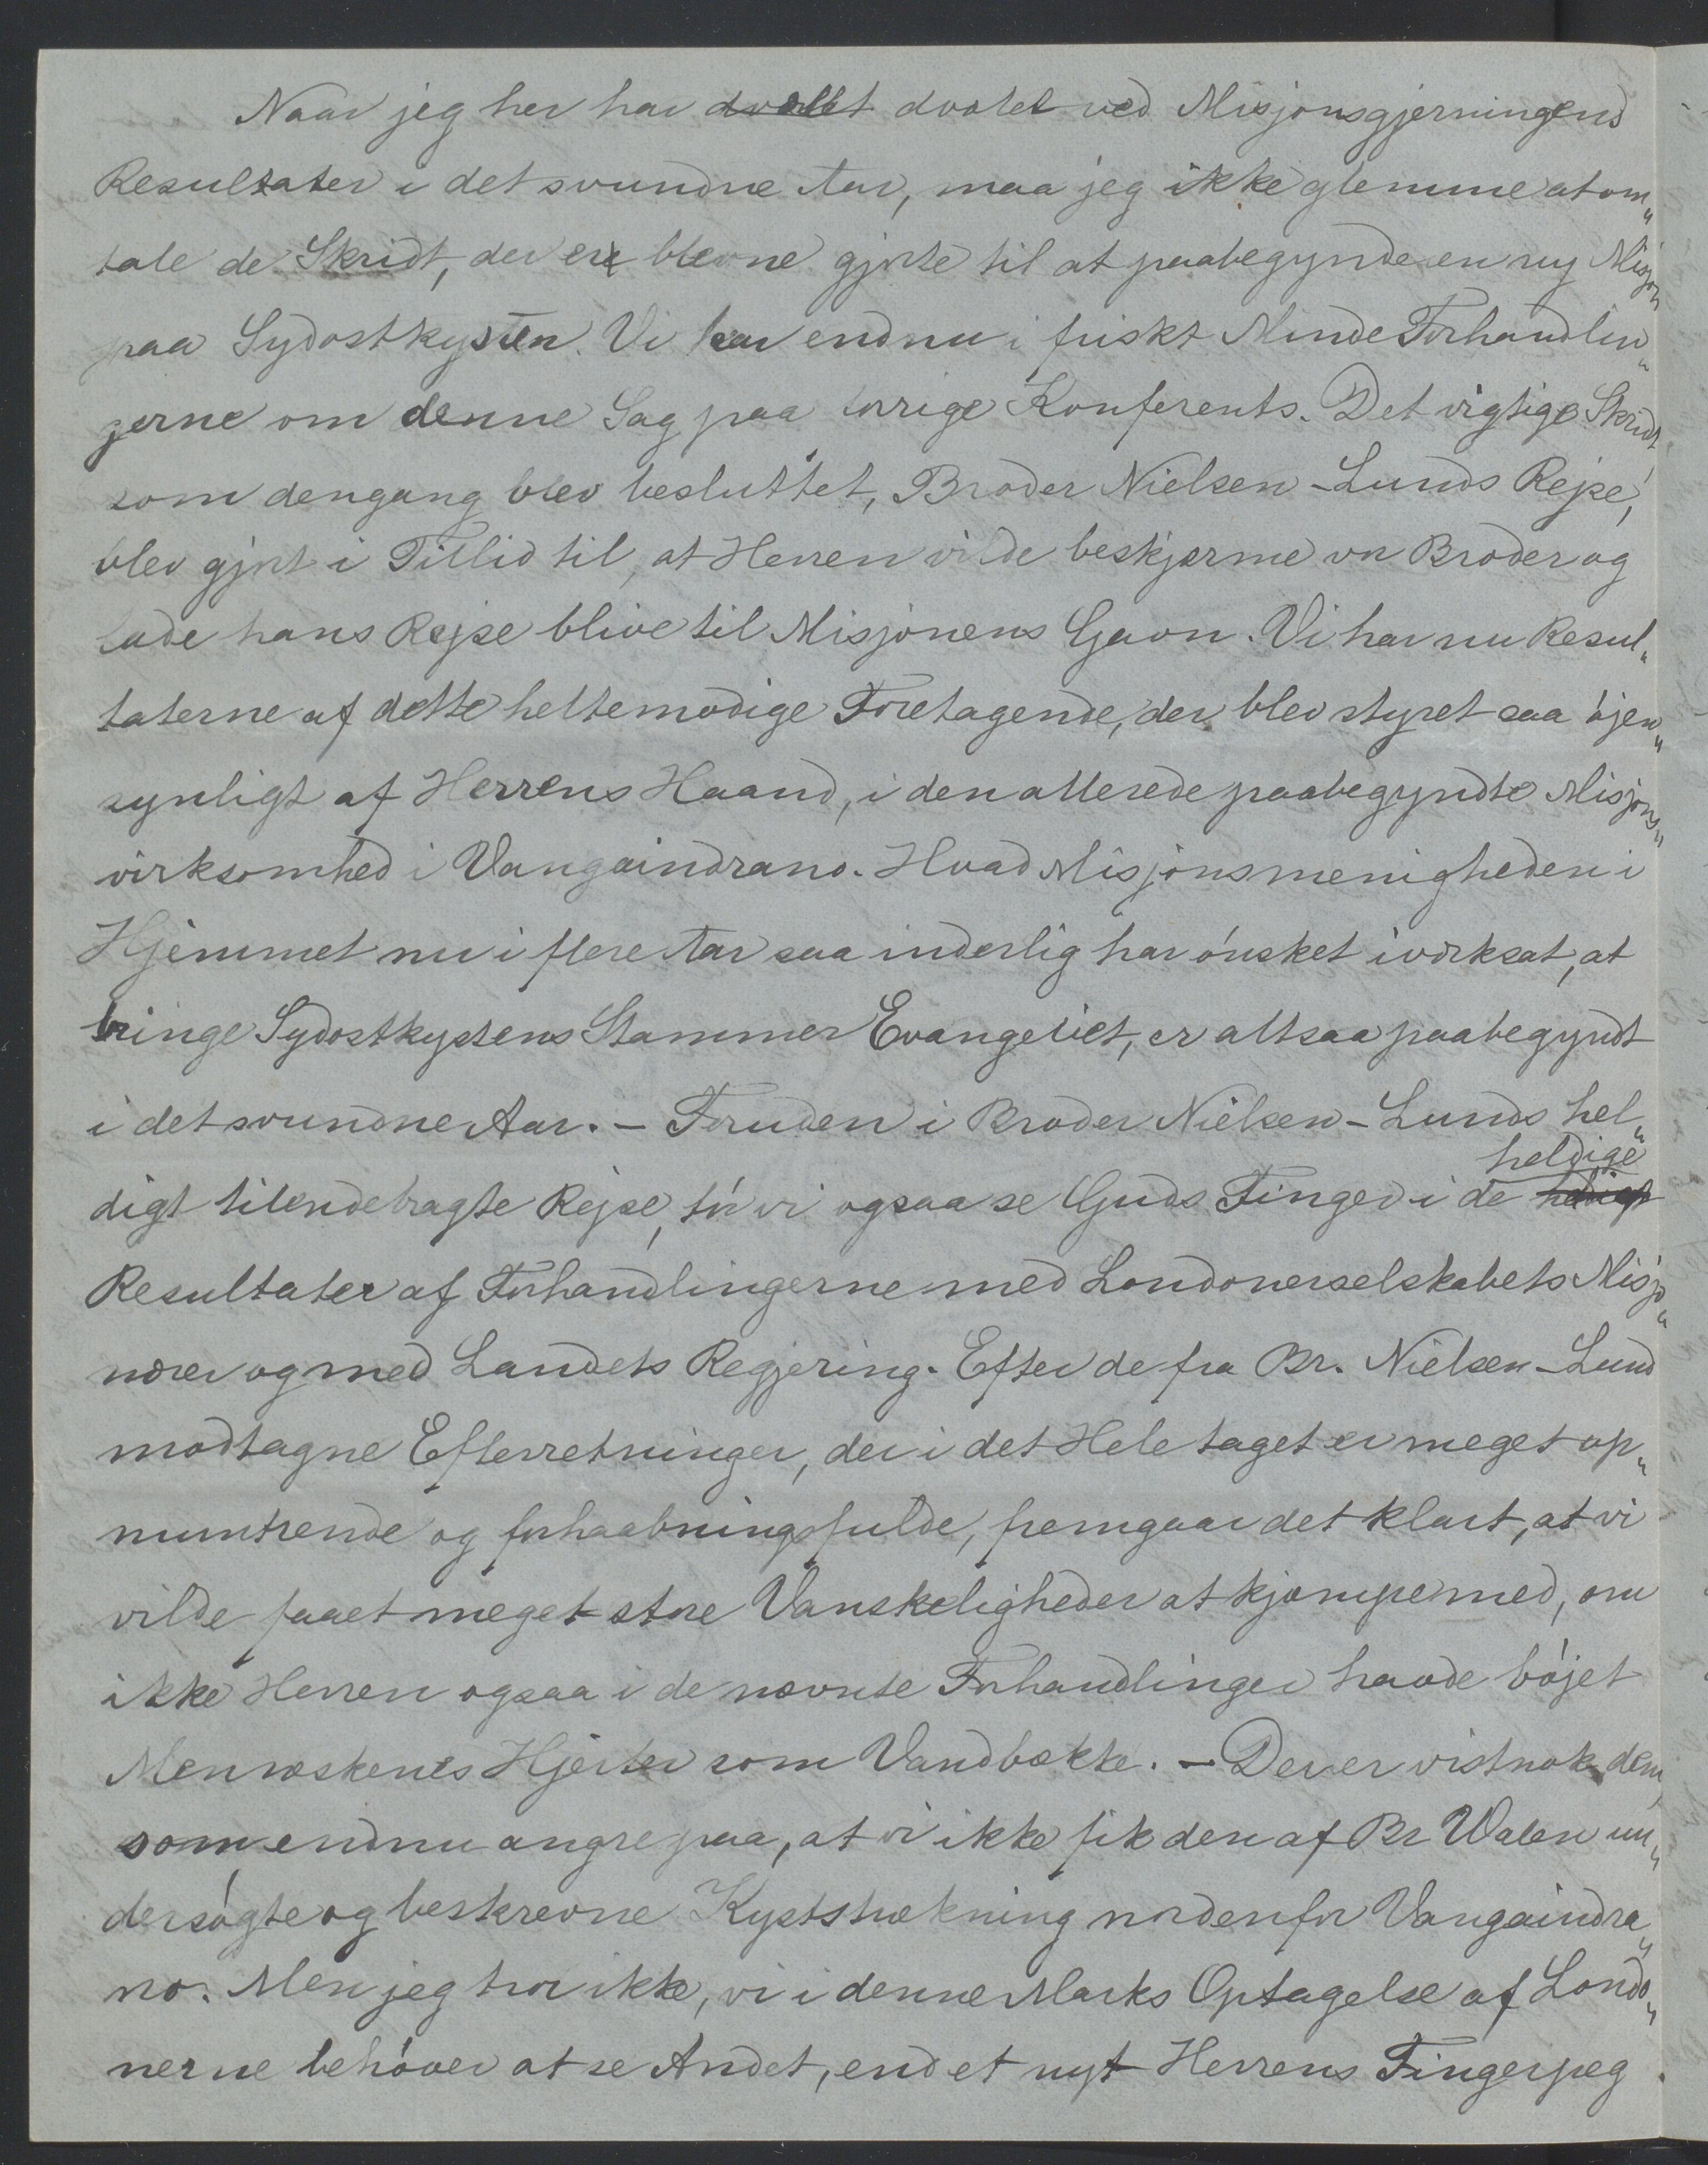 Naar jeg her har dvælet dvælet ved Misjonsgjerningens
Resultater i det svundne Aar, maa jeg ikke glemme at om„
tale de Skridt, der ere blevne gjorte til at paabegynde en ny Misjon
paa Sydostkysten. Vi har endnu i friskt Minde Forhandlin„
gerne om denne Sag paa forrige Konferents. Det vigtige Skridt,
som dengang blev besluttet, Broder Nielsen-Lunds Rejse,
blev gjort i Tillid til, at Herren vilde beskjærme vor Broder og
lade hans Rejse blive til Misjonens Gavn. Vi har nu Resul„
taterne af dette heltemodige Foretagende, der blev styret saa öjen„
synligt af Herrens Haand, i den allerede paabegyndte Misjons„
virksomhed i Vangaindrano. Hvad Misjonsmenigheden i
Hjemmet nu i flere Aar saa inderlig har önsket iværksat, at
bringe Sydostkystens Stammer Evangeliet, er altsaa paabegyndt
i det svundne Aar. – Foruden i Broder Nielsen-Lunds hel„
digt tilendebragte Rejse, tör vi ogsaa se Guds Finger i de heldige
Resultater af Forhandlingerne med Londonerselskabets Misjo„
nærer og med Landets Regjering. Efter de fra Br. Nielsen-Lund
modtagne Efterretninger, der i det Hele taget er meget op„
muntrende og forhaabningsfulde, fremgaar det klart, at vi
vilde faaet meget store Vanskeligheder at kjæmpe med, om
ikke Herren ogsaa i de nævnte Forhandlinger havde böjet
Menneskenes Hjerter som Vandbække. – Der er vistnok dem,
som endnu angre paa, at vi ikke fik den af Br Walen un„
dersögte og beskrevne Kyststrækning nordenfor Vangaindra„
no. Men jeg tror ikke, vi i denne Marks Optagelse af Londo„
nerne behöver at se Andet, end et nyt Herrens Fingerpeg